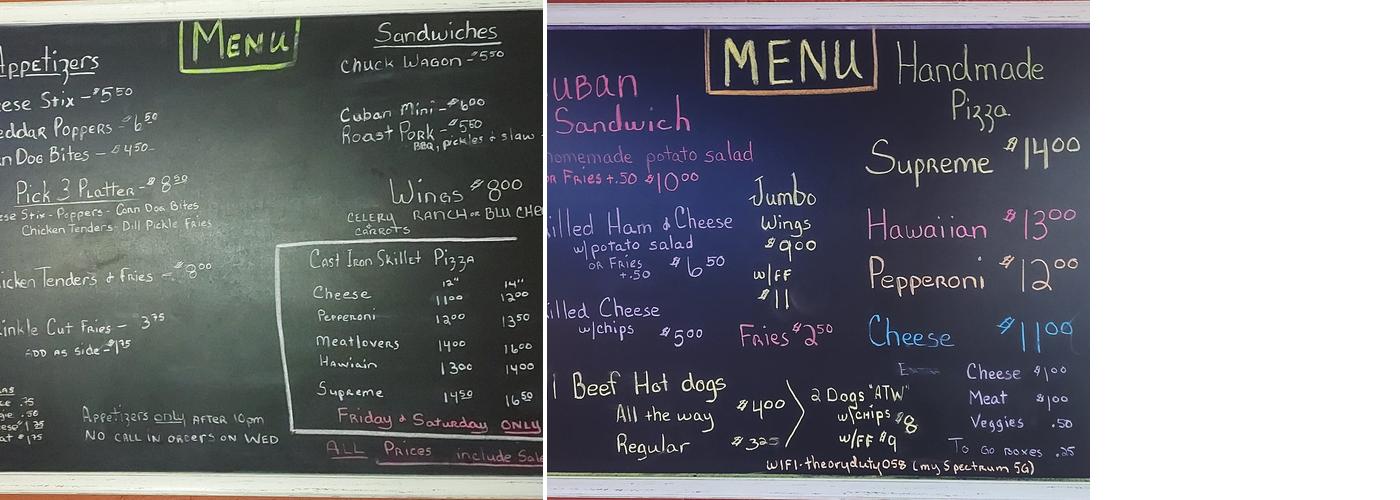 MENU
Appetizers
ese Stix - $5.50
eddar Poppers - $6.50
n Dog Bites - $4.50
Pick 3 Platter - $8.50
ese Stix - Poppers - Corn Dog Bites
Chicken Tenders - Dill Pickle Fries
icken Tenders & Fries - $8.00
inkle Cut Fries - 3.75
ADD AS side - $1.75
.75
.50
$1.75
Appetizers only AFTER 10pm
NO CALL IN ORDERS ON WED
Sandwiches
Chuck Wagon - $5.50
Cuban Mini - $6.00
Roast Pork - $5.50
BBQ, pickles & slaw
Wings $8.00
CELERY RANCH OR BLU CHE
CARROTS
Cast Iron Skillet Pizza
12" 14"
Cheese 11.00 12.00
Pepperoni 12.00 13.50
Meatlovers 14.00 16.00
Hawiain 13.00 14.00
Supreme 14.50 16.50
Friday & Saturday ONLY
ALL Prices include Sale
MENU
uban
Sandwich
homemade potato salad
OR Fries +.50 $10.00
illed Ham & Cheese
w/potato salad
OR Fries
+.50 $6.50
illed Cheese
w/chips $5.00
Jumbo
Wings
$9.00
w/FF
$11
Fries $2.50
Beef Hot dogs
All the way $4.00
Regular $3.25
2 Dogs "ATW"
w/chips $8
w/FF $9
Handmade
Pizza
Supreme $14.00
Hawaiian $13.00
Pepperoni $12.00
Cheese $11.00
Cheese $1.00
Meat $1.00
Veggies .50
To Go Boxes .25
WIFI - theoryduty058 (my Spectrum 5G)